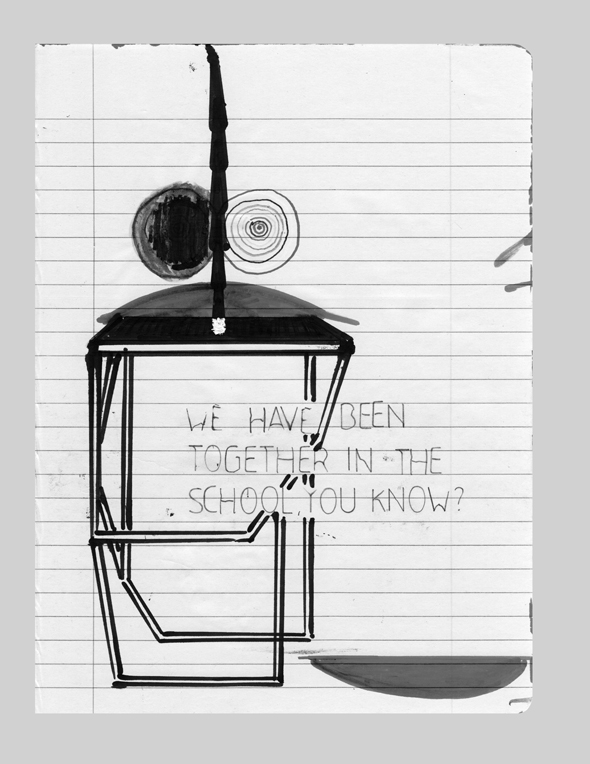 WE HAVE BEEN
TOGETHER IN THE
SCHOOL, YOU KNOW?